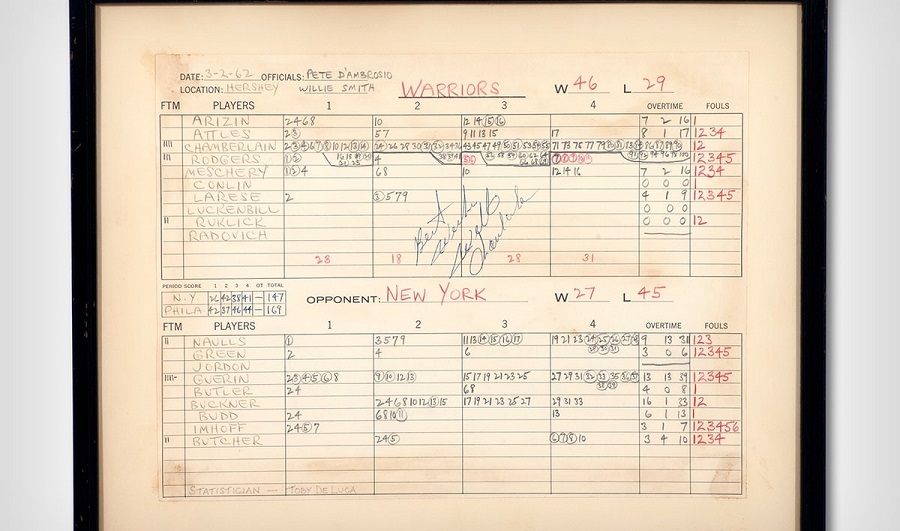 DATE: 3-2-62 OFFICIALS: PETE D'AMBROSIO
LOCATION: HERSHEY WILLIE SMITH WARRIORS W 46 L 29
FTM PLAYERS 1 2 3 4 OVERTIME FOULS
ARIZIN 2468 10 12 14 15 16 7 2 16 1
ATTLES 2 3 57 9 11 13 15 17 8 1 17 1234
CHAMBERLAIN 12
RODGERS 12 4 12345
MESCHERY 1 2 4 68 10 12 14 16 7 2 16 1234
CONLIN 0 0 0 1
LARESE 2 3 579 4 1 9 12345
LUCKENBILL 0 0 0
RUKLICK 0 0 0 12
RADOVICH
23 18 28 31
Best Wishes
Wilt Chamberlain
PERIOD SCORE 1 2 3 4 OT TOTAL
N.Y. 26 42 38 41 — 147
PHILA 42 37 46 44 — 169
OPPONENT: NEW YORK W 27 L 45
FTM PLAYERS 1 2 3 4 OVERTIME FOULS
NAULLS 1 3579 11 13 14 15 16 17 19 21 23 24 25 26 27 28 9 13 31 123
29 30 31
GREEN 2 4 6 3 0 6 12345
JORDON
GUERIN 2 3 4 5 6 8 9 10 12 13 15 17 19 21 23 25 27 29 31 32 33 35 36 37 13 13 39 12345
38 39
BUTLER 24 68 4 0 8 1
BUCKNER 2 4 6 8 10 12 13 15 17 19 21 23 25 27 29 31 33 16 1 33 12
BUDD 24 6 8 10 11 13 6 1 13 1
IMHOFF 24 5 7 3 1 7 123456
BUTCHER 24 5 6 7 8 10 3 4 10 1234
STATISTICIAN — TOBY DE LUCA